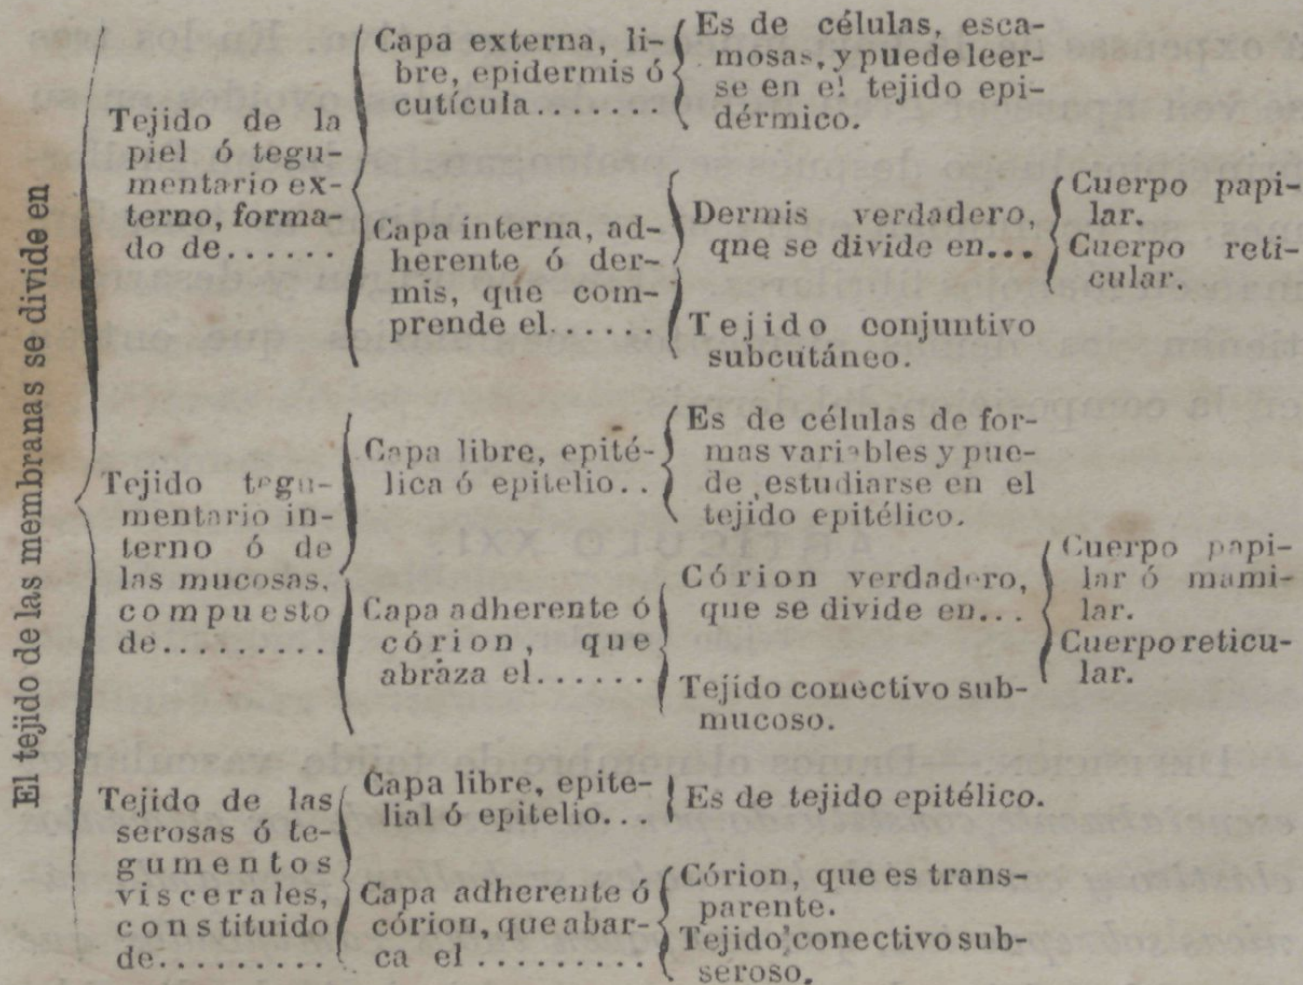 El tejido de las membranas se divide en
Tejido de la
piel ó tegu-
mentario ex-
terno, forma-
do de......
Capa externa, li-
bre, epidermis ó
cutícula.......
Es de células, esca-
mosas, y puede leer-
se en el tejido epi-
dérmico.
Capa interna, ad-
herente ó der-
mis, que com-
prende el......
Dermis verdadero,
que se divide en...
Cuerpo papi-
lar.
Cuerpo reti-
cular.
Tejido conjuntivo
subcutáneo.
Tejido tegu-
mentario in-
terno ó de
las mucosas,
compuesto
de.........
Capa libre, epité-
lica ó epitelio..
Es de células de for-
mas variables y pue-
de estudiarse en el
tejido epitélico.
Capa adherente ó
córion, que
abraza el......
Córion verdadero,
que se divide en...
Cuerpo papi-
lar ó mami-
lar.
Cuerpo reticu-
lar.
Tejido conectivo sub-
mucoso.
Tejido de las
serosas ó te-
gumentos
viscerales,
constituido
de.........
Capa libre, epite-
lial ó epitelio...
Es de tejido epitélico.
Capa adherente ó
córion, que abar-
ca el .........
Córion, que es trans-
parente.
Tejido conectivo sub-
seroso.